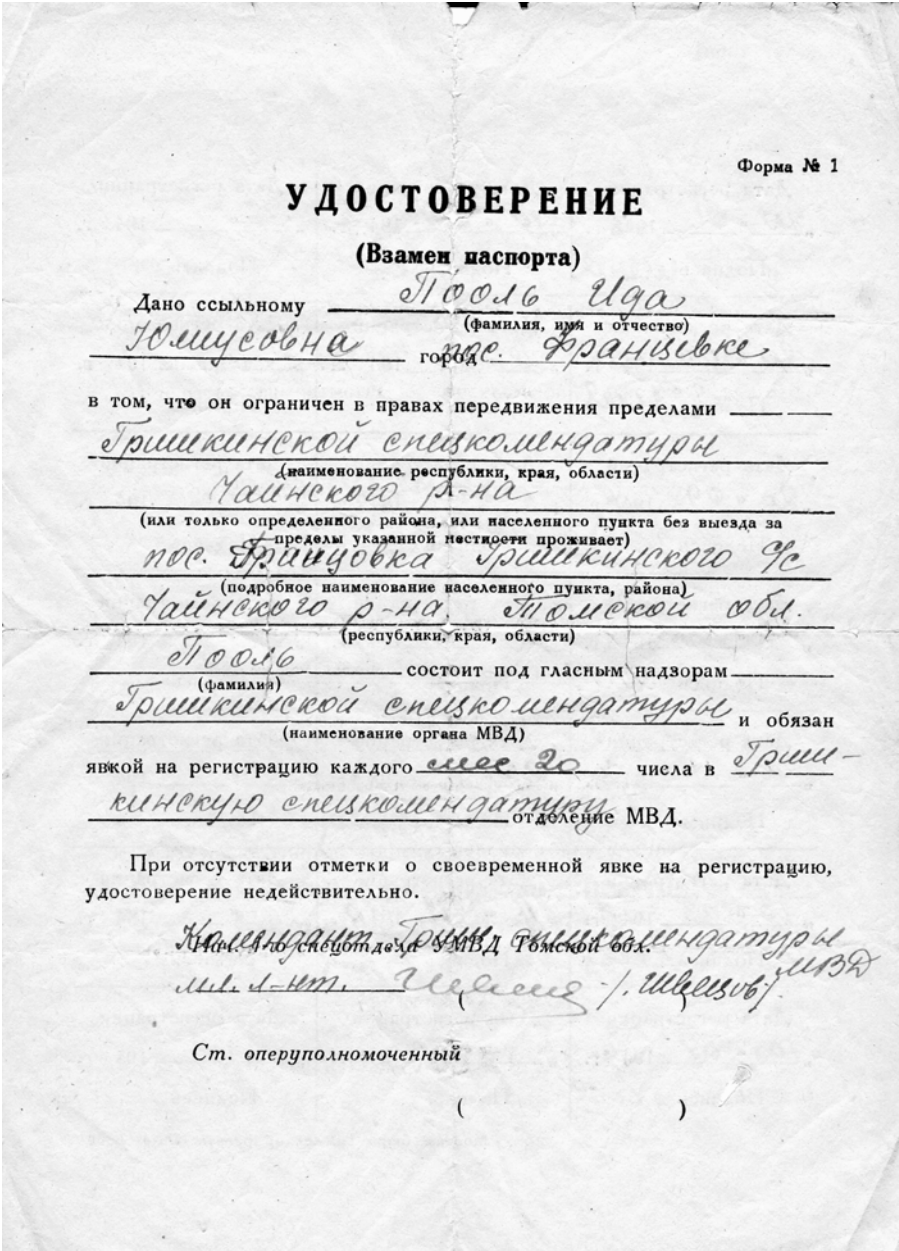 Форма № 1
УДОСТОВЕРЕНИЕ
(Взамен паспорта)
Дано ссыльному Пооль Ида
(фамилия, имя и отчество)
Юлиусовна город пос. Францевке
в том, что он ограничен в правах передвижения пределами
Гришкинской спецкомендатуры
(наименование республики, края, области)
Чаинского р-на
(или только определенного района, или населенного пункта без выезда за
пределы указанной местности проживает)
пос. Францовка Гришкинского с/с
(подробное наименование населенного пункта, района)
Чаинского р-на Томской обл.
(республики, края, области)
Пооль состоит под гласным надзорам
(фамилия)
Гришкинской спецкомендатуры и обязан
(наименование органа МВД)
явкой на регистрацию каждого мес 20 числа в Гриш-
кинскую спецкомендатуру отделение МВД.
При отсутствии отметки о своевременной явке на регистрацию,
удостоверение недействительно.
Комендант Гришк спецкомендатуры
Нач. 4-го спецотдела УМВД Томской обл.
МВД
мл. л-нт. (/. Швецов /)
Ст. оперуполномоченный
( )